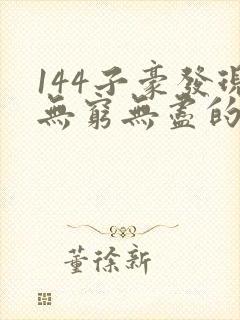 144子豪發現
無窮無盡的
董徐新